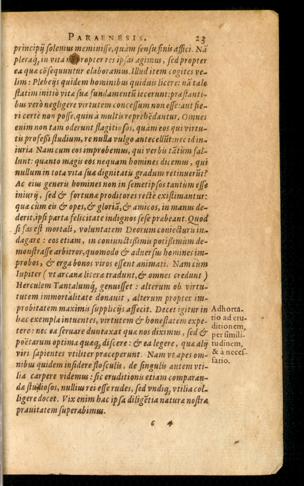 PARAENESIS. 23
principij solemus meminisse, quàm sensu finis affici. Nā
pleraq; in vita nō propter res ipsas agimus, sed propter
ea quæ cōsequuntur elaboramus. Illud item cogites ve-
lim: Plebeijs quidem hominibus quiduis licere: nā tale
statim initiò vitæ suæ fundamentū iecerunt: præstanti-
bus verò negligere virtutem concessum non esse: aut fie-
ri certè non posse, quin à multis reprehēdantur. Omnes
enim non tam oderunt flagitiosos, quàm eos qui virtu-
tis professi studium, re nulla vulgo antecellūt: nec id in-
iuria. Nam cum eos improbemus, qui verbis tātùm fal-
lunt: quanto magis eos nequam homines dicemus, qui
nullum in tota vita suæ dignitatis gradum retinuerūt?
Ac eius generis homines non in semetipsos tantum esse
iniurij, sed & fortunæ proditores rectè existimantur:
quæ cùm eis & opes, & gloriā, & amicos, in manus de-
derit, ipsi parta felicitate indignos sese præbeant. Quod
si fas est mortali, voluntatem Deorum coniectura in-
dagare: eos etiam, in coniunctissimis potissimùm de-
monstrasse arbitror, quomodo & aduersus homines im-
probos, & erga bonos viros essent animati. Nam cùm
Iupiter (vt arcana literæ tradunt, & omnes credunt)
Herculem Tantalumq; genuisset: alterum ob virtu-
tem immortalitate donauit, alterum propter im-
probitatem maximis supplicijs affecit. Decet igitur in
hæc exempla intuentes, virtutem & honestatem expe-
tere: nec ea seruare duntaxat quæ nos diximus, sed &
poëtarum optima quæq; discere: & ea legere, quæ alij
viri sapientes vtiliter præceperunt. Nam vt apes om-
nibus quidem insidere flosculis, de singulis autem vti-
lia carpere videmus: sic eruditionis etiam comparan-
dæ studiosos, nullius rei esse rudes, sed vndiq; vtilia col-
ligere docet. Vix enim hac ipsa diligētia naturæ nostræ
prauitatem superabimus.
Adhorta-
tio ad eru-
ditionem,
per simili-
tudinem,
& a neces-
sario.
6 4